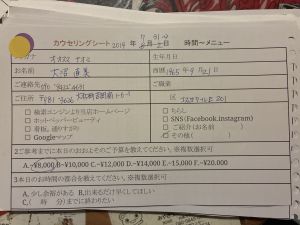 カウンセリングシート 2019年 7月 31日 時間ーメニュー
フリガナ オオヌマ ナオミ 生年月日
お名前 大沼 直美 西暦 1965年 9月 21日
ご連絡先 ご職業
ご住所 〒981 3626 区
□ 検索エンジンより当店ホームページ □ ちらし
□ ホットペッパービューティ □ SNS(Facebook.instagram)
□ 看板、通りすがり □ ご紹介(お名前 )
□ Googleマップ □ その他( )
2ご参考までに本日のおおよそのご予算を教えてください。※複数選択可
A.~¥8,000 B~¥10,000 C.~¥12,000 D.~¥14,000 E.~15,000 F.~¥20.000
3本日のお時間の都合を教えてください。※複数選択可
A, 少し余裕がある B,出来るだけ早くしてほしい
C,( 時 )までに終わりたい